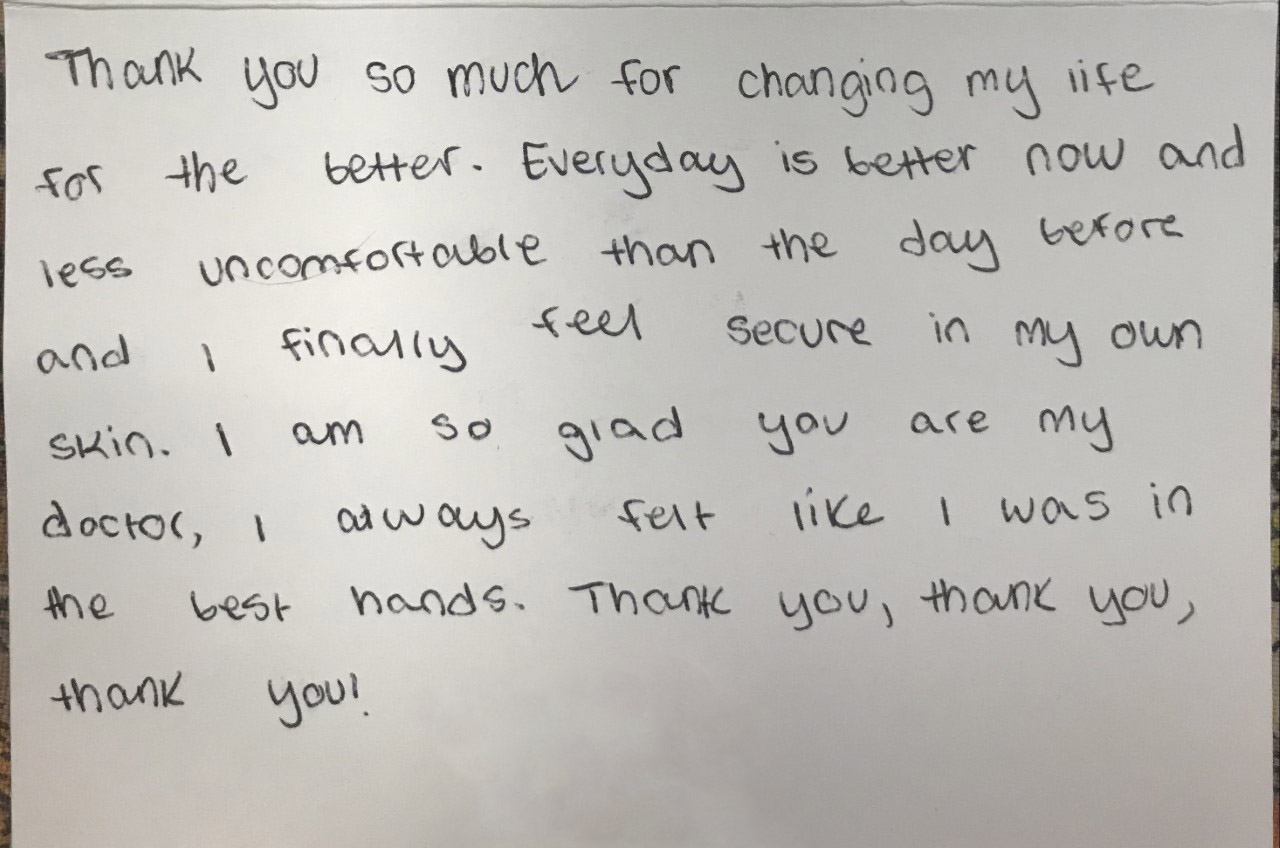 Thank you so much for changing my life
for the better. Everyday is better now and
less uncomfortable than the day before
and I finally feel secure in my own
skin. I am so glad you are my
doctor, I always felt like I was in
the best hands. Thank you, thank you,
thank you!